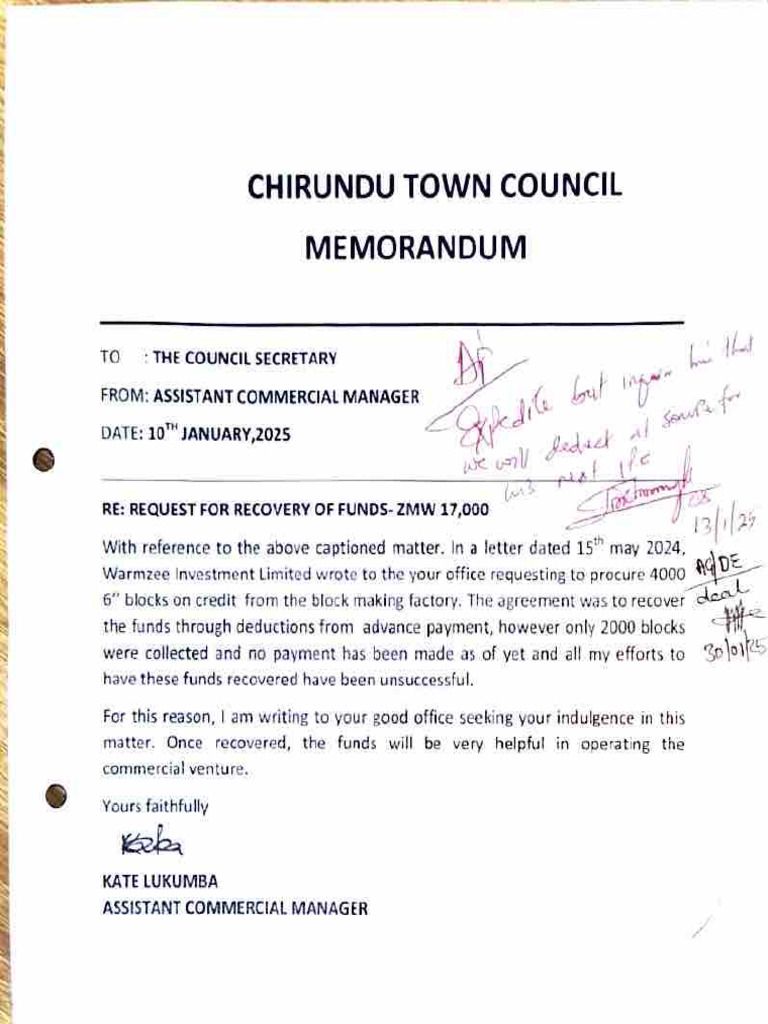 CHIRUNDU TOWN COUNCIL
MEMORANDUM
TO : THE COUNCIL SECRETARY
FROM: ASSISTANT COMMERCIAL MANAGER
DATE: 10TH JANUARY,2025
Expedite but inform him that
we will deduct at source for
his next IPC
CS
13/1/25
RE: REQUEST FOR RECOVERY OF FUNDS- ZMW 17,000
With reference to the above captioned matter. In a letter dated 15th may 2024,
Warmzee Investment Limited wrote to the your office requesting to procure 4000
6" blocks on credit from the block making factory. The agreement was to recover
the funds through deductions from advance payment, however only 2000 blocks
were collected and no payment has been made as of yet and all my efforts to
have these funds recovered have been unsuccessful.
Ag/DE
deal
30/01/25
For this reason, I am writing to your good office seeking your indulgence in this
matter. Once recovered, the funds will be very helpful in operating the
commercial venture.
Yours faithfully
KATE LUKUMBA
ASSISTANT COMMERCIAL MANAGER